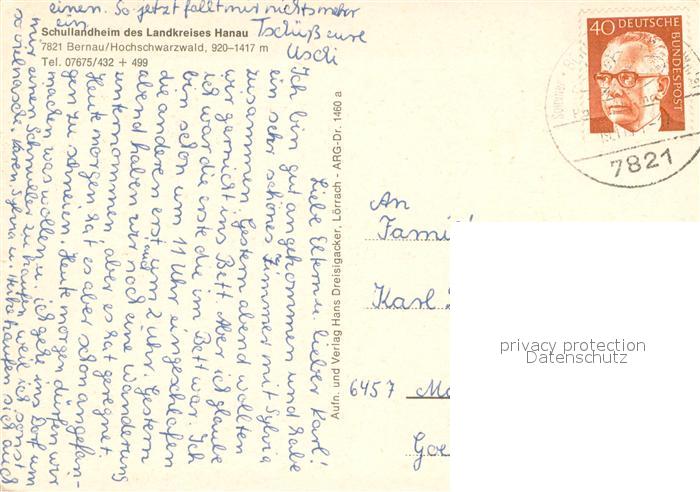 Schullandheim des Landkreises Hanau
7821 Bernau/Hochschwarzwald, 920–1417 m
Tel. 07675/432 + 499
Liebe Eltern u. lieber Karl!
Ich bin gut angekommen und habe
ein sehr schönes Zimmer mit Sylvia
zusammen. Gestern abend wollten
wir garnicht ins Bett. Aber ich glaube
ich war die erste die im Bett war. Ich
bin schon um 11 Uhr eingeschlafen
die anderen erst um 2 Uhr. Gestern
abend haben wir noch eine Wanderung
unternommen, aber es hat geregnet.
Heute morgen hat es aber schon angefan-
gen zu schneien. Heute morgen dürfen wir
machen was wollen u. ich gehe ins Dorf um
mir einen Schnuller zu kaufen, weil ich sonst
so viel nasche. Karen, Sylvia u. Heike kaufen sich auch
einen. So jetzt fällt mir nichts mehr
ein
Tschüß eure
Uschi
Aufn. und Verlag Hans Dreisigacker, Lörrach - ARG-Dr. 1460 a
40 DEUTSCHE
BUNDESPOST
Sommer
7821
An
Karl
6457
privacy protection
Datenschutz